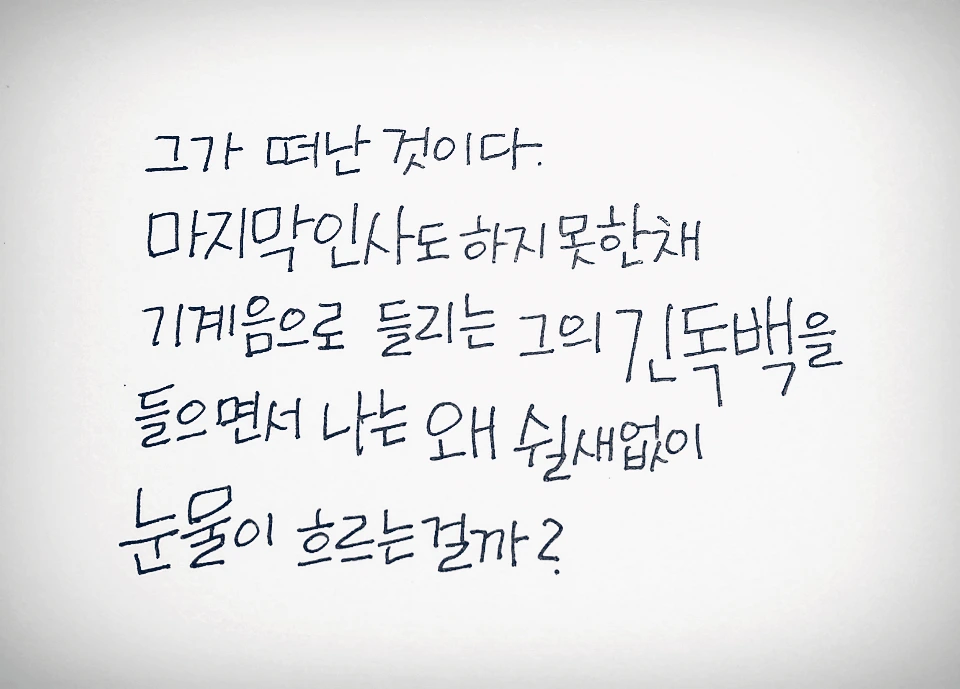 그가 떠난 것이다.
마지막인사도 하지 못한채
기계음으로 들리는 그의 긴독백을
들으면서 나는 왜 쉴새없이
눈물이 흐르는걸까?